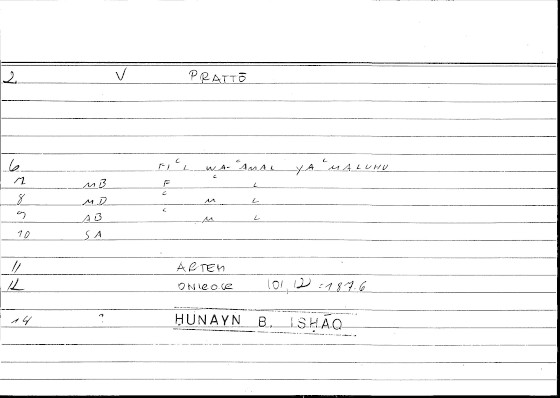 2 V PRATTŌ
6 FIʿL WA-ʿAMAL YAʿMALUHU
7 MB F ʿ L
8 MD ʿ M L
9 AB ʿ M L
10 SA
11 ARTEM
12 101,12 = 187.6
14 ? HUNAYN B. ISḤĀQ